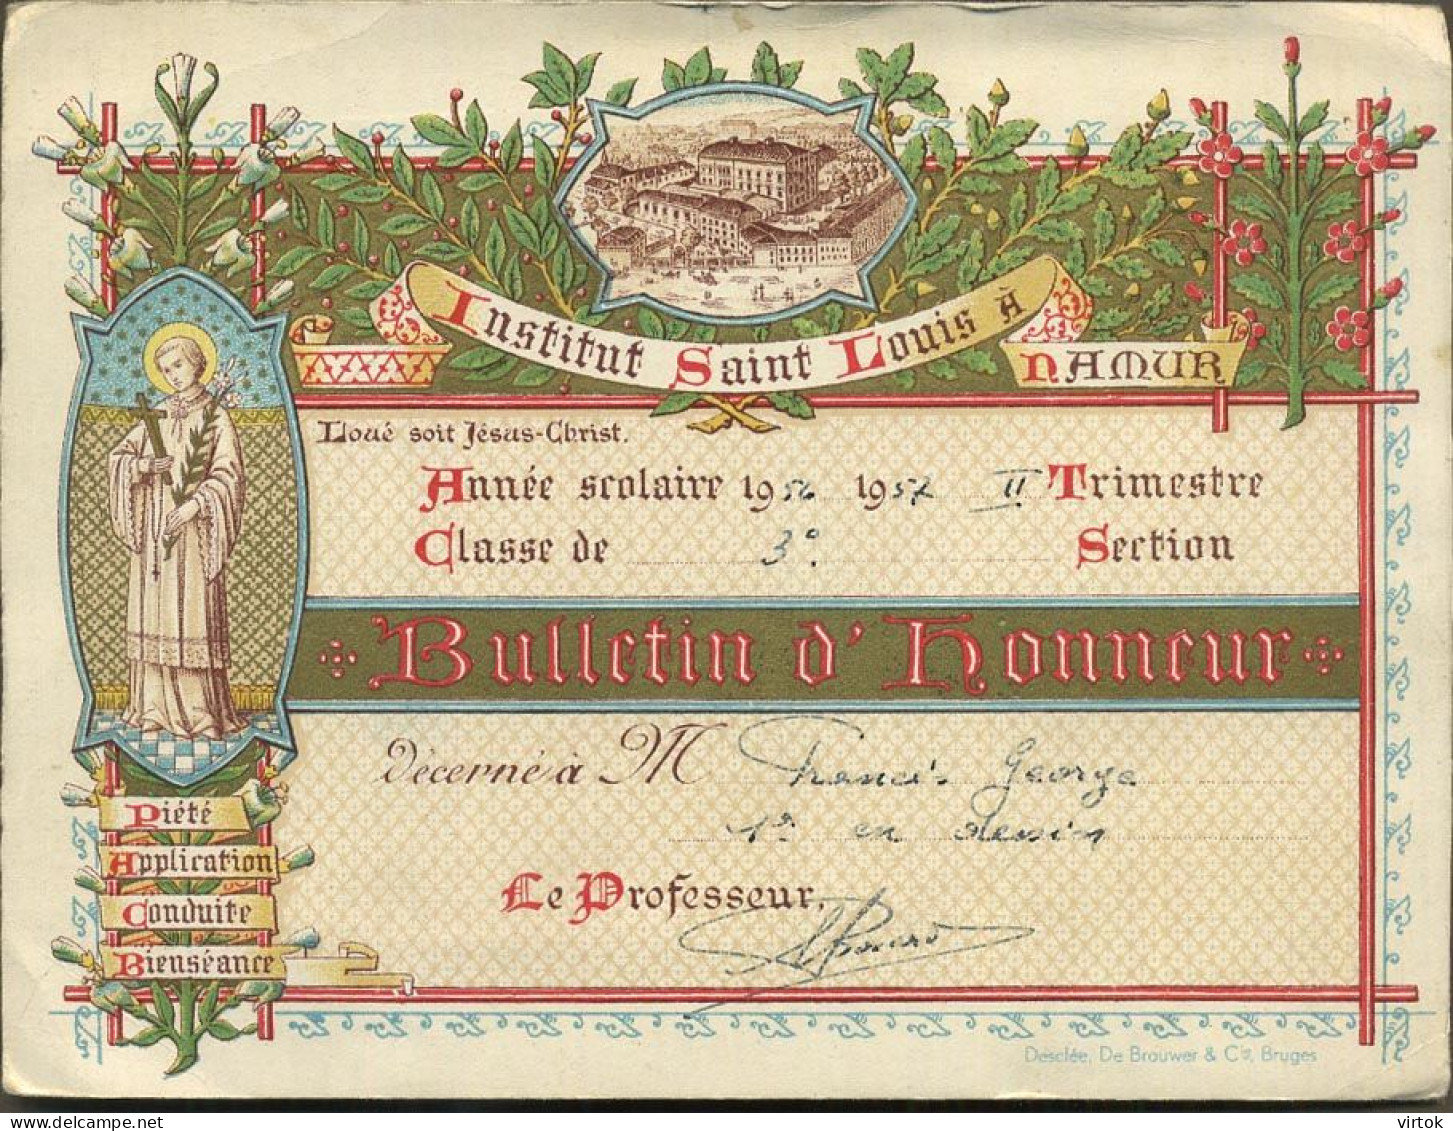 Institut Saint Louis À NAMUR
Loué soit Jésus-Christ.
Année scolaire 1956 1957 II Trimestre
Classe de 3e Section
Bulletin d'Honneur
décerné à M Francis George
1er en dessin
Le Professeur,
Piété
Application
Conduite
Bienséance
Desclée, De Brouwer & Cie, Bruges
virtok